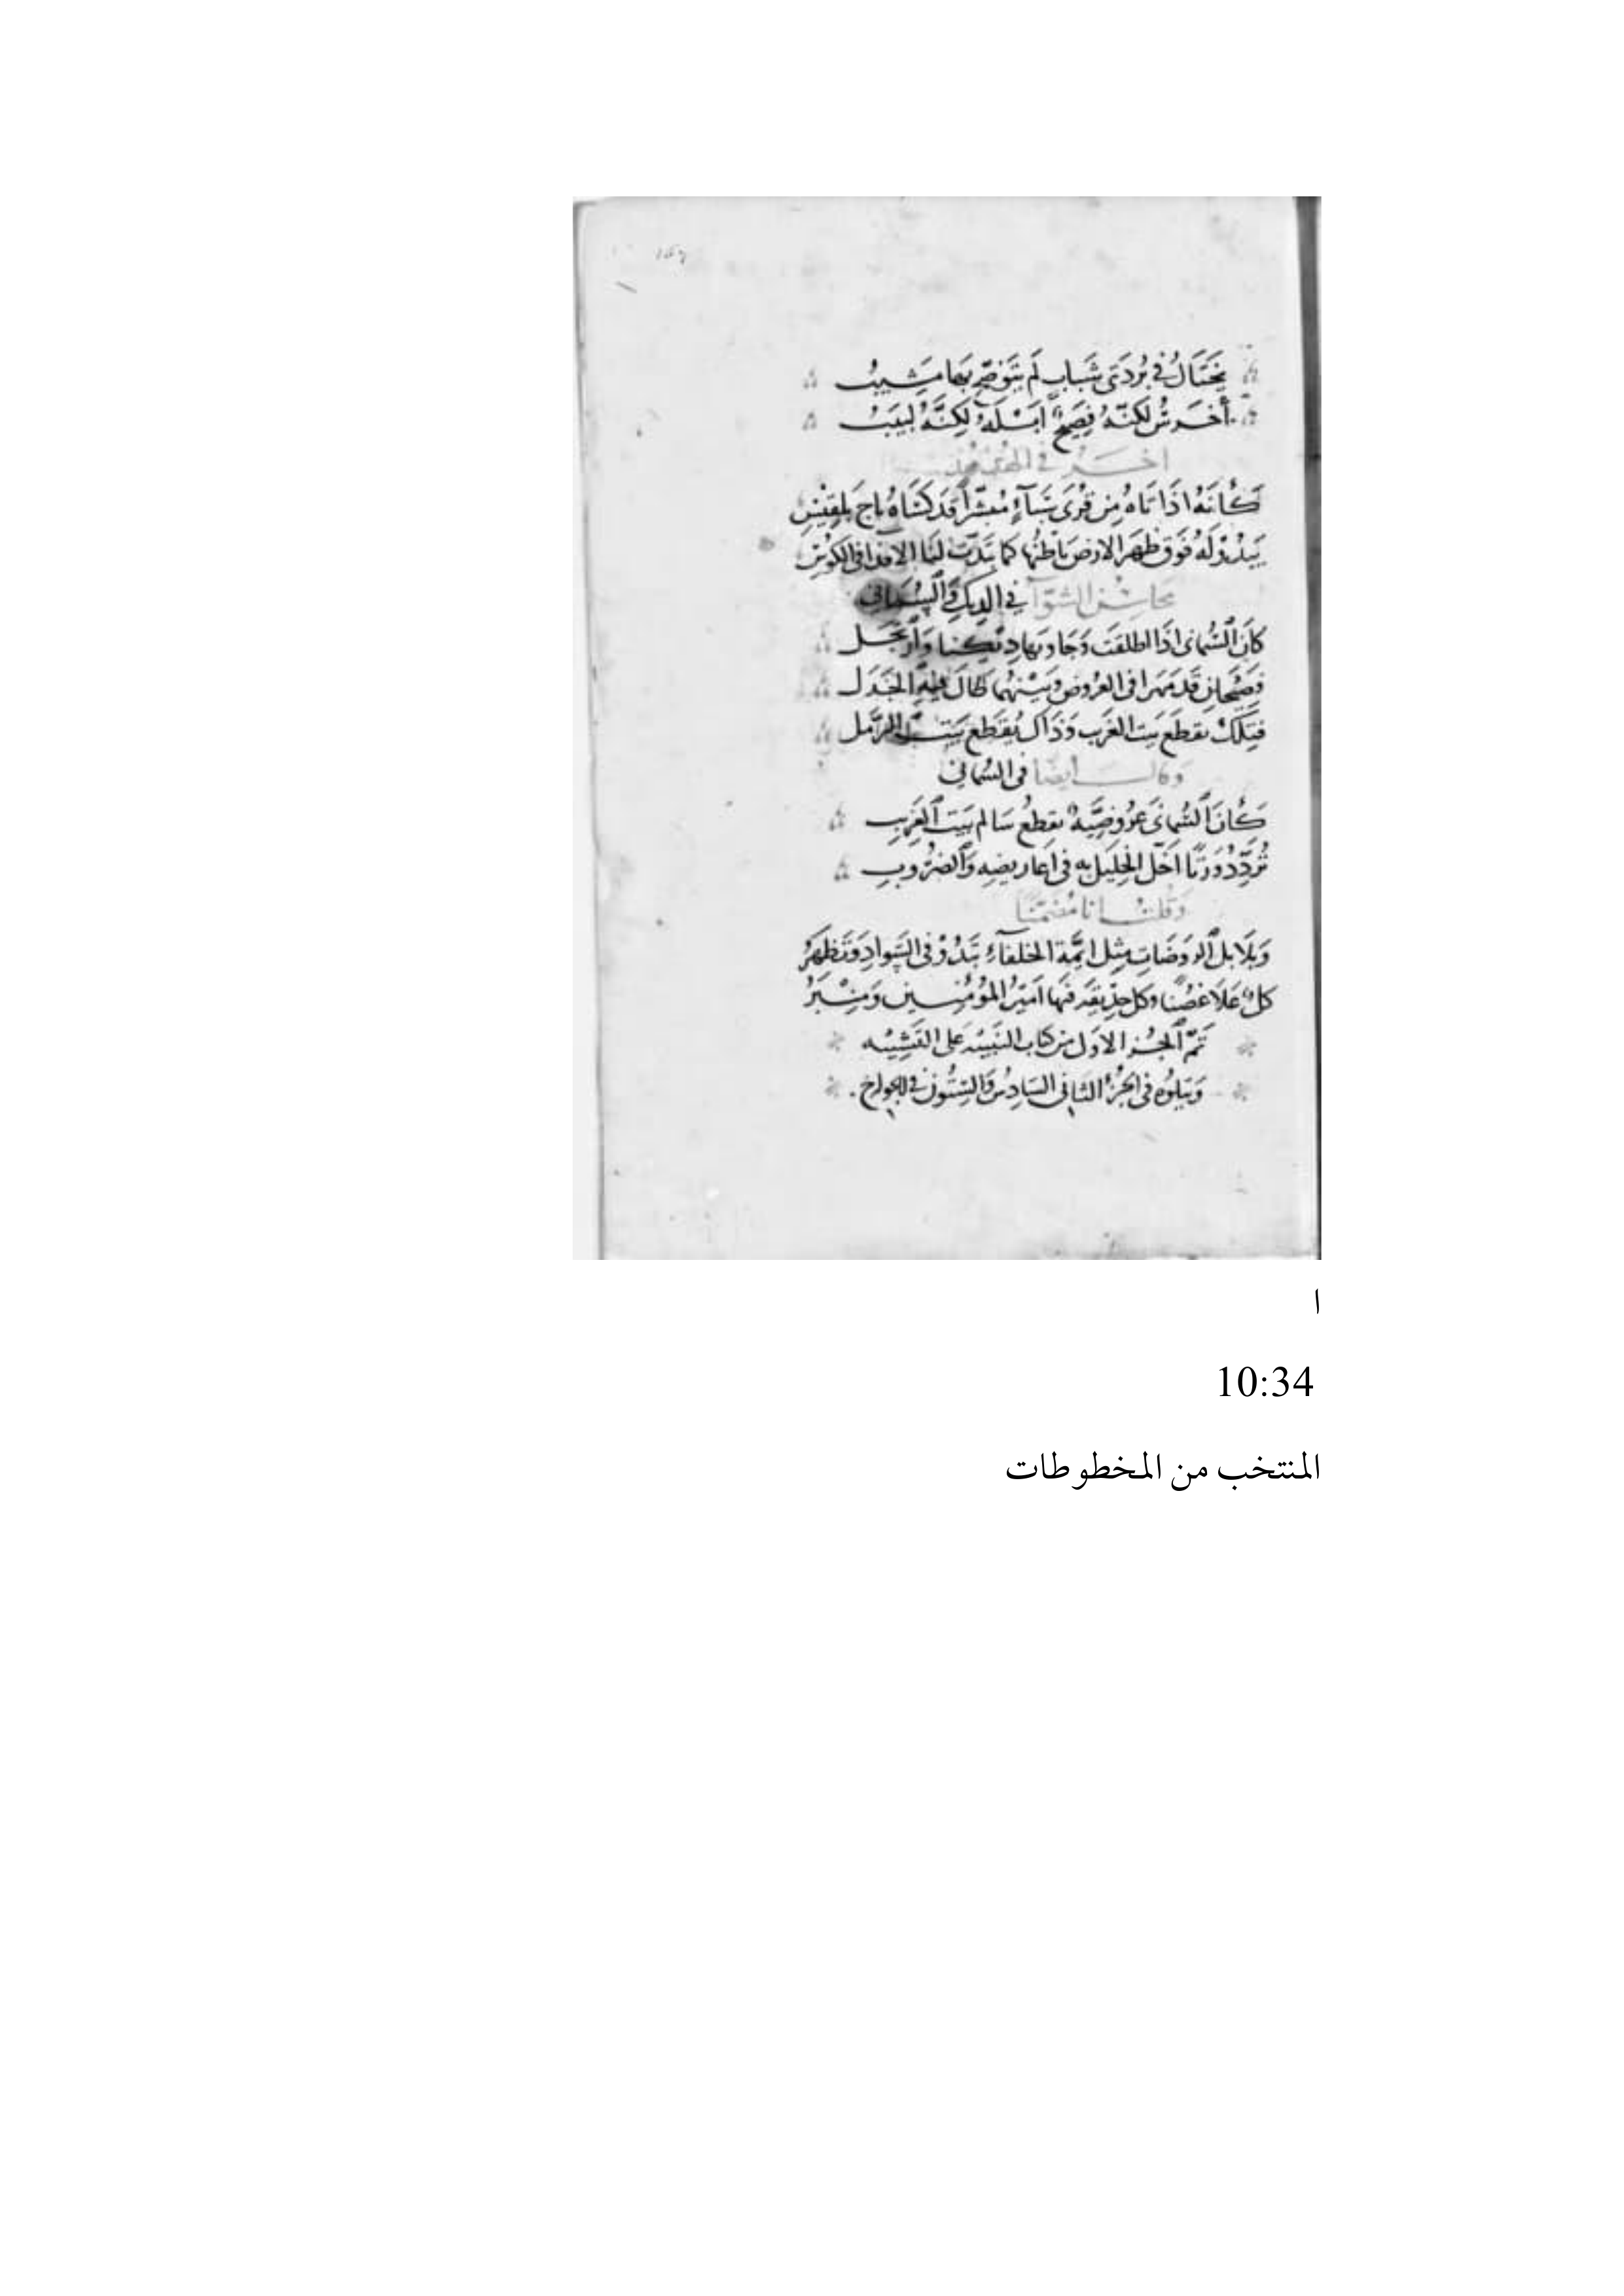 ١٤٧
يختال في بردتي شباب لم يتوضح بها مشيب
أخرس لكنه فصيح ابله لكنه لبيب
اخر في الهدهد
كأنه اذ اتاه من قرى سبأ مبشرا قد كساه تاج بلقيس
يبدو له فوق ظهر الارض باطنها كما تبدت لنا الاقذا في الكوس
محاسن الشوآ في الديك والسماني
كان السماني اذا اطلقت وجاوبها ديكنا وارتجل
فصيحان قد مهرا في العروض وبينهما طال فيه الجدل
فتلك تقطع بيت الغرب وذاك يقطع بيت الرمل
وقال أيضا في السماني
كأن السماني عروضية تقطع سالم بيت الغريب
تردد وزنا اخل الخليل به في اعاريضه والضروب
وقلت انا مضمنا
وبلابل الروضات مثل ائمة الخلفاء تبدو في السواد وتظهر
كل علا غصنا وكل فيها امير المؤمنين ومنبر
تم الجز الاول من كتاب التنبيه على التشبيه
ويتلوه في الجزء الثاني السادس والستون في الجوارح.
ا
10:34
المنتخب من المخطوطات